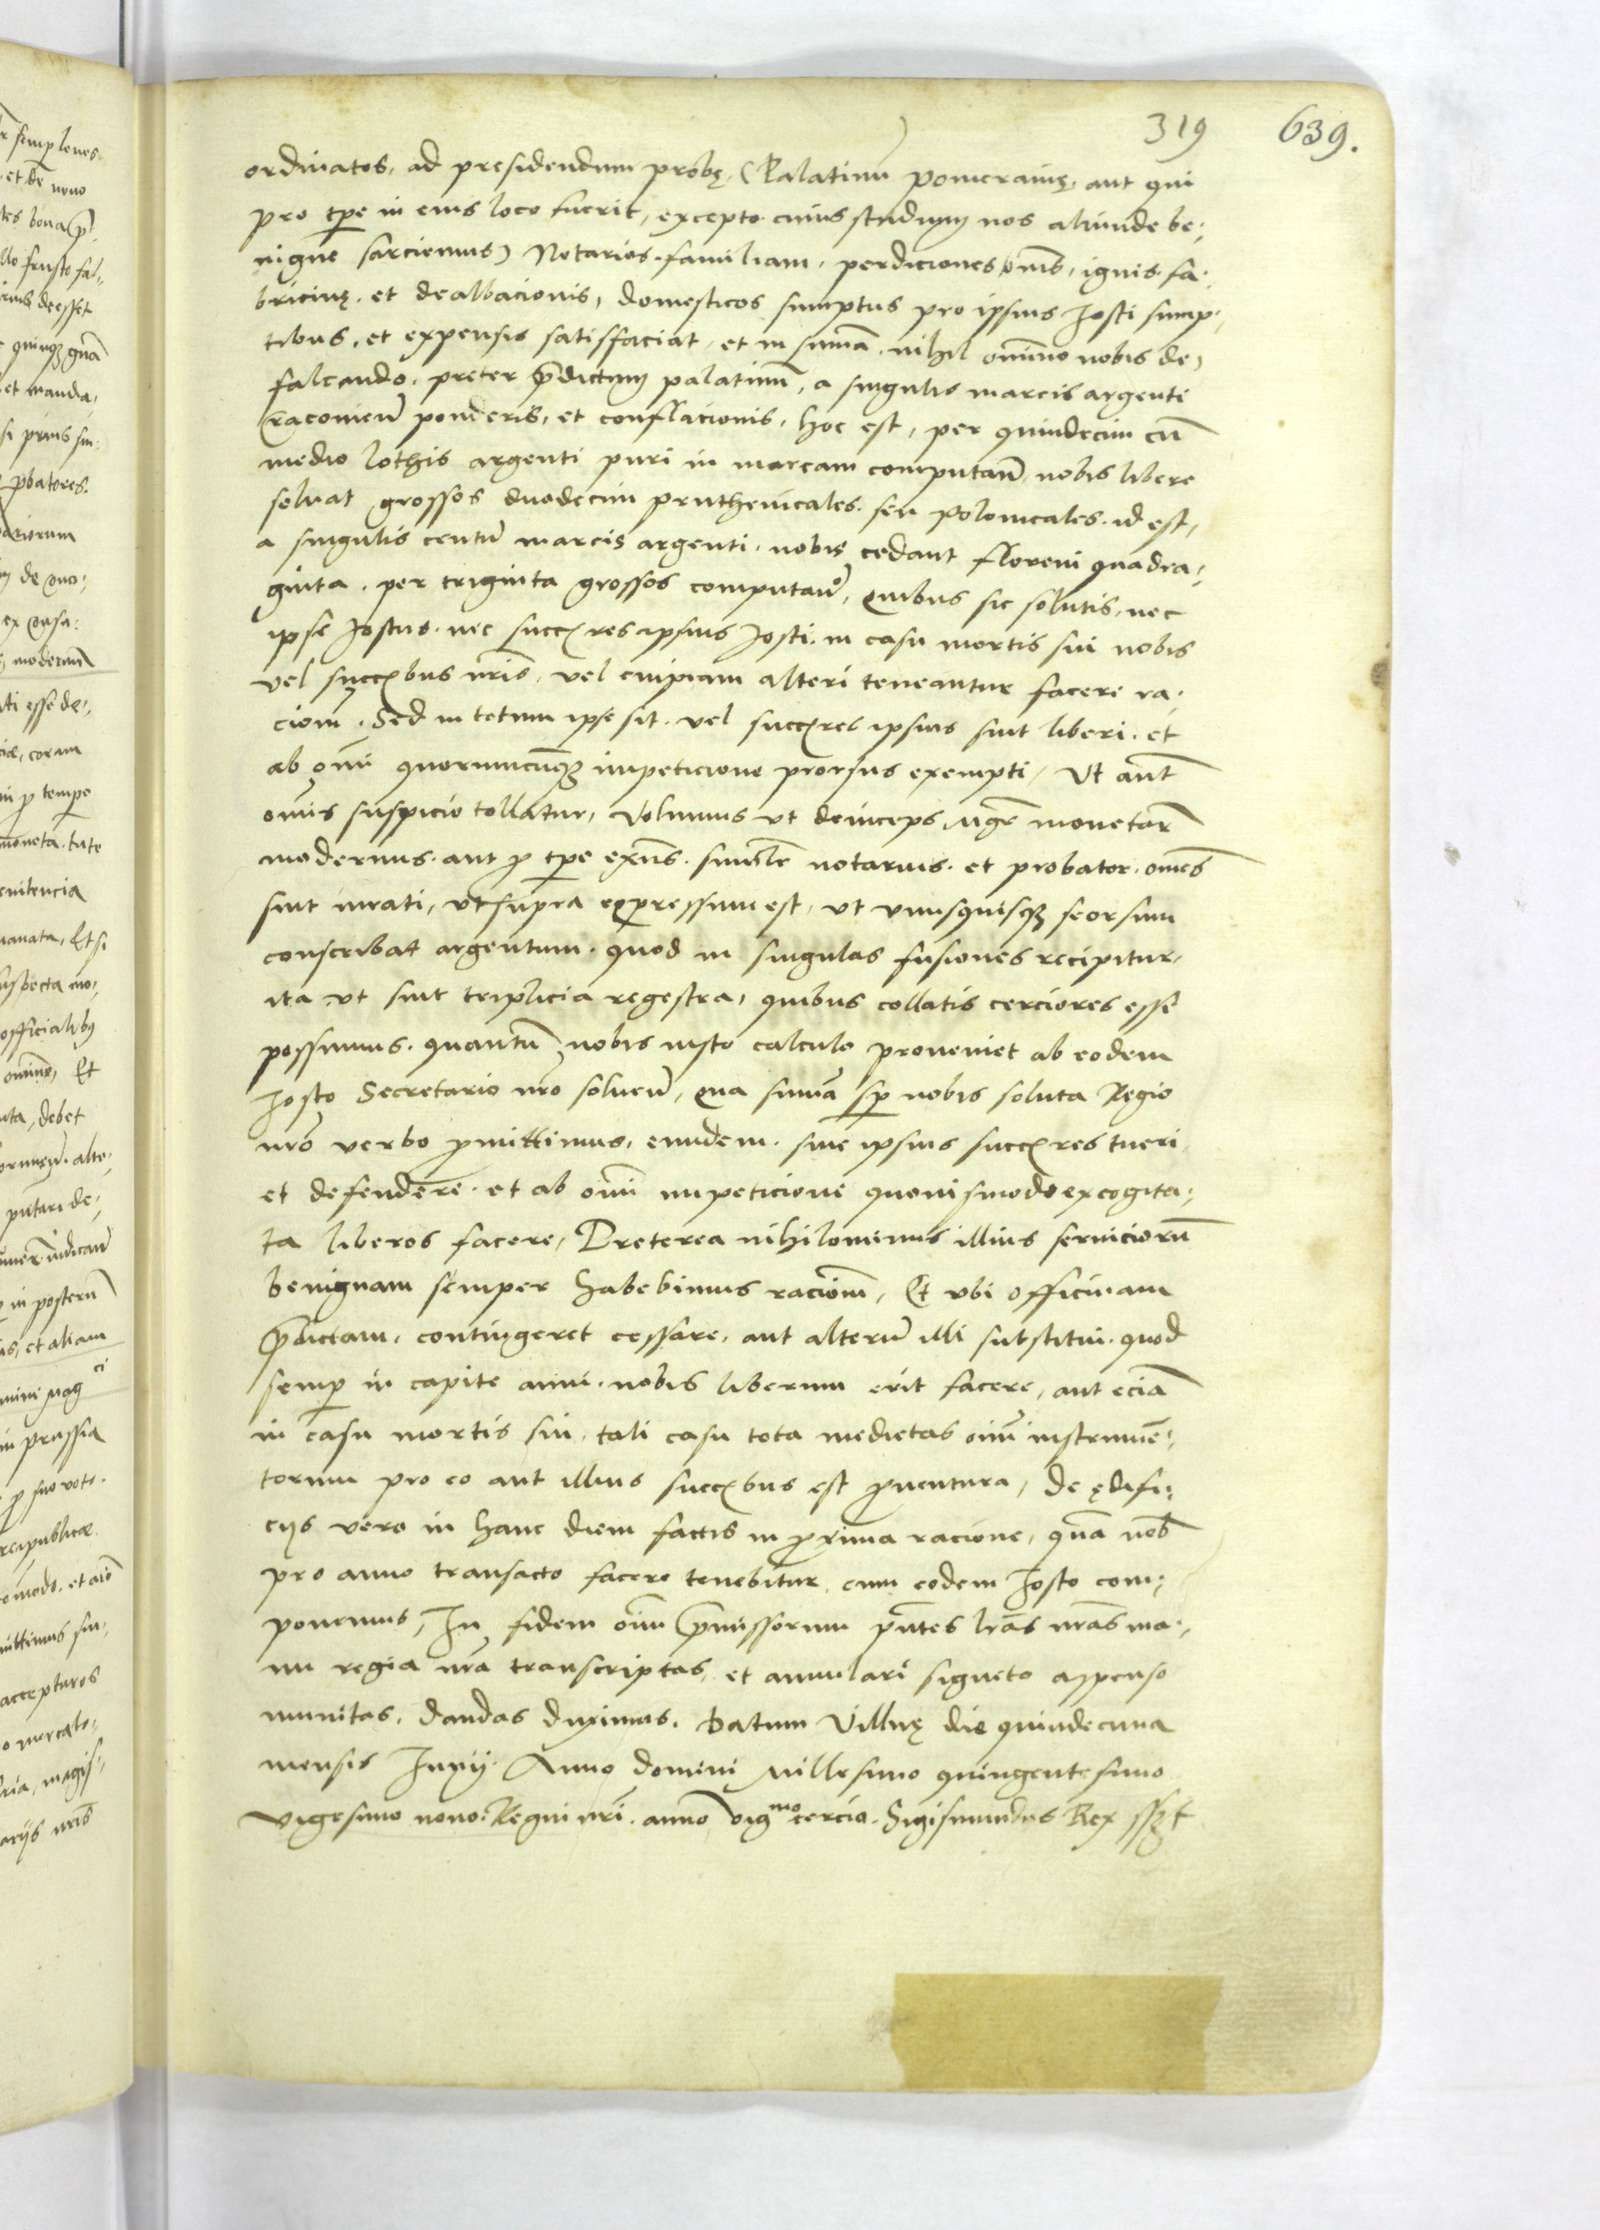 319 639.
ordinatos, ad presidendum probę, (Palatinū pomeranię, aut qui
pro tpe in eius loco fuerit, excepto cuius studium nos aliunde be¬
nigne sarciemus) Notarios familiam, perdiciones om̄s, ignis fa¬
bricinę et dealbacionis, domesticos sumptus pro ipsius Josti sump¬
tibus, et expensis satisfaciat, et in sum̄a nihil om̄ino nobis de¬
falcando, preter p̄dictum palatinū, a singulis marcis argenti
raconien̄ ponderis, et conflacionis, hoc est, per quindecim cū
medio lothis argenti puri in marcam computan̄ nobis libere
solvat grossos duodecim pruthenicales seu Polonicales id est,
a singulis centū marcis argenti nobis cedant floreni quadra¬
ginta per triginta grossos computan̄, quibus sic solutis, nec
ipse Jostus nec succ̄res ipsius Josti in casu mortis sui nobis
vel succ̄bus nr̄is, vel cuipiam alteri teneantur facere ra¬
ciom̄. Sed in totum ipse sit vel succ̄res ipsius sint liberi et
ab om̄i quorumcūqȝ impeticione prorsus exempti, Ut aūt
omis suspicio tollatur, Volumus ut deinceps, mgr̄ monetar̄
modernus aut p tpe exn̄s, simlr̄ notarius et probator om̄es
sint iurati, ut supra expressum est, ut unusquisqȝ seorsim
conscribat argentum quod in singulas fusiones recipitur,
ita ut sint triplicia regestra, quibus collatis cerciores esse
possimus quantū nobis iusto calculo proveniet ab eodem
Josto Secretario nr̄o solven̄, qua sum̄a sp̄ nobis soluta Regio
nr̄o verbo pmittimus, eundem sive ipsius succ̄res tueri
et defendere et ab om̄i impeticione quovismodo excogita¬
ta liberos facere, Preterea nihilominus illius serviciorū
benignam semper habebimus raciom̄, Et ubi officinam
p̄dictam contingeret cessare, aut alterū illi substitui quod
semp in capite anni nobis liberum erit facere, aut eciā
in casu mortis sui, tali casu tota medietas oim̄ instrumē¬
torum pro eo aut illius succ̄bus est pventura, de ędifi¬
cijs vero in hanc diem factis in pxima racione, quā nob̄
pro anno transacto facere tenebitur cum eodem Josto com¬
ponemus, In fidem oim̄ p̄missorum pn̄tes lr̄as nr̄as ma¬
nu regia nr̄a transcriptas et annulari signeto appenso
munitas, dandas duximus. Datum Vilnę die quindecima
mensis Junij Anno domini millesimo quingentesimo
vigesimo nono. Regni nr̄i anno vigmo tercio. Sigismundus Rex sszt